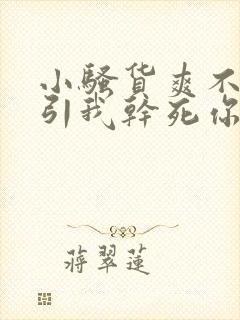 小骚货爽不
引我幹死你
蒋翠莲